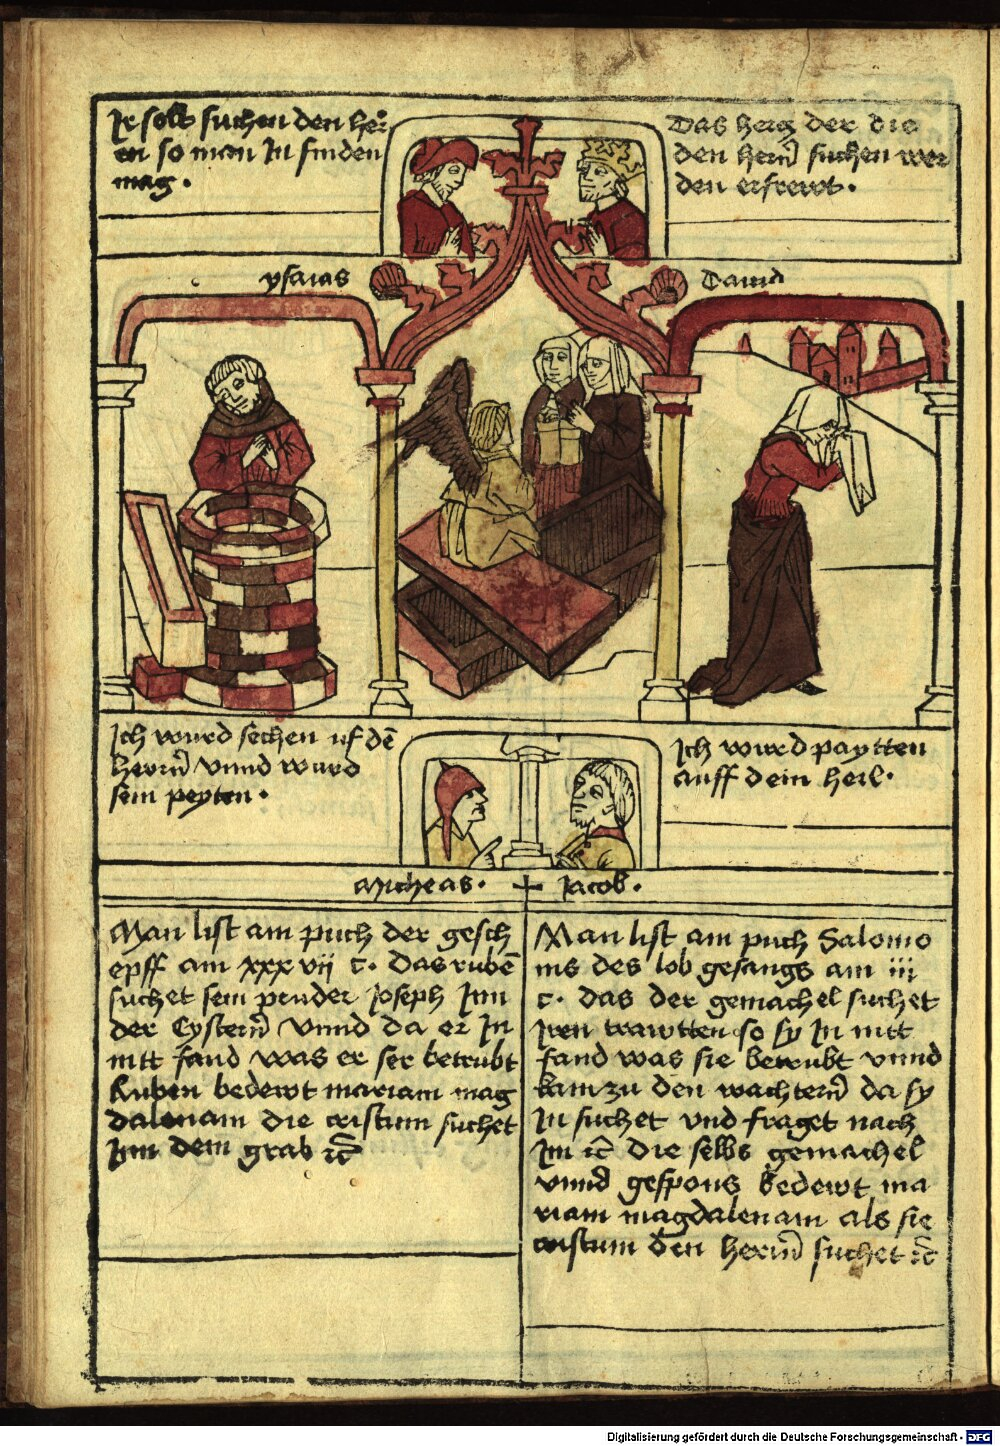 Ir solt suchen den her
en so man In finden
mag .
Das hertz der die
den hern̄ suchen wer
den erfrewt .
ysaias
Dauid
Ich wurd sechen uf dē
herrn̄ vnnd wurd
sein peyten .
Ich wurd paytten
auff dein heil .
Micheas . + Jacob .
Man list am puch der gesch
epff am xxxvii c . das rubē
suchet sein pruder Joseph Inn
der Cystern̄ vnnd da er In
nitt fand was er ser betrubt
Ruben bedewt mariam mag
dalenam die cristum suchet
Inn dem grab ⁊c̄
Man list am puch Salomo
nis des lob gesangs am iii
c . das der gemachel suchet
Iren trawtten so sy In nitt
fand was sie betrubt vnnd
kam zu den wachtern̄ da sy
In suchet vnd fraget nach
Im ⁊c̄ die selbs gemachel
vnnd gespons bedewt ma
riam magdalenam als sie
cristum den herrn̄ suchet ⁊c̄
Digitalisierung gefördert durch die Deutsche Forschungsgemeinschaft - DFG